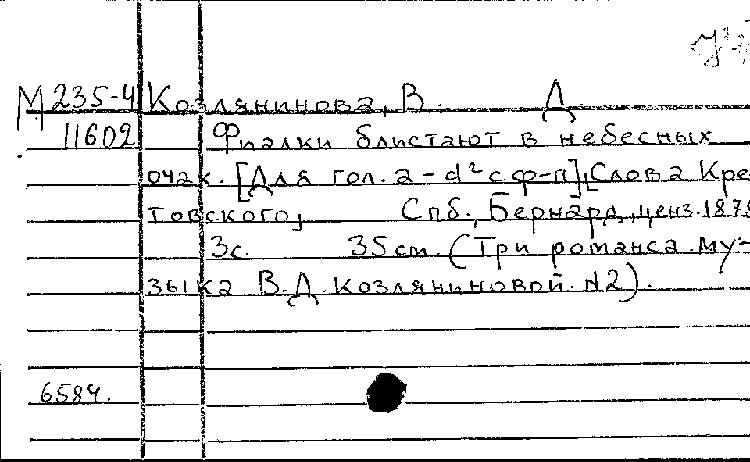 М 235-4 Козлянинова, В. Д
11602 Фиалки блистают в небесных
очах. [Для гол. a-d² с ф-п], Слова Кре-
товского, Спб., Бернард, ценз. 1878
3с. 35 см. (Три романса му-
зыка В.Д. Козляниновой. N2).
6584.